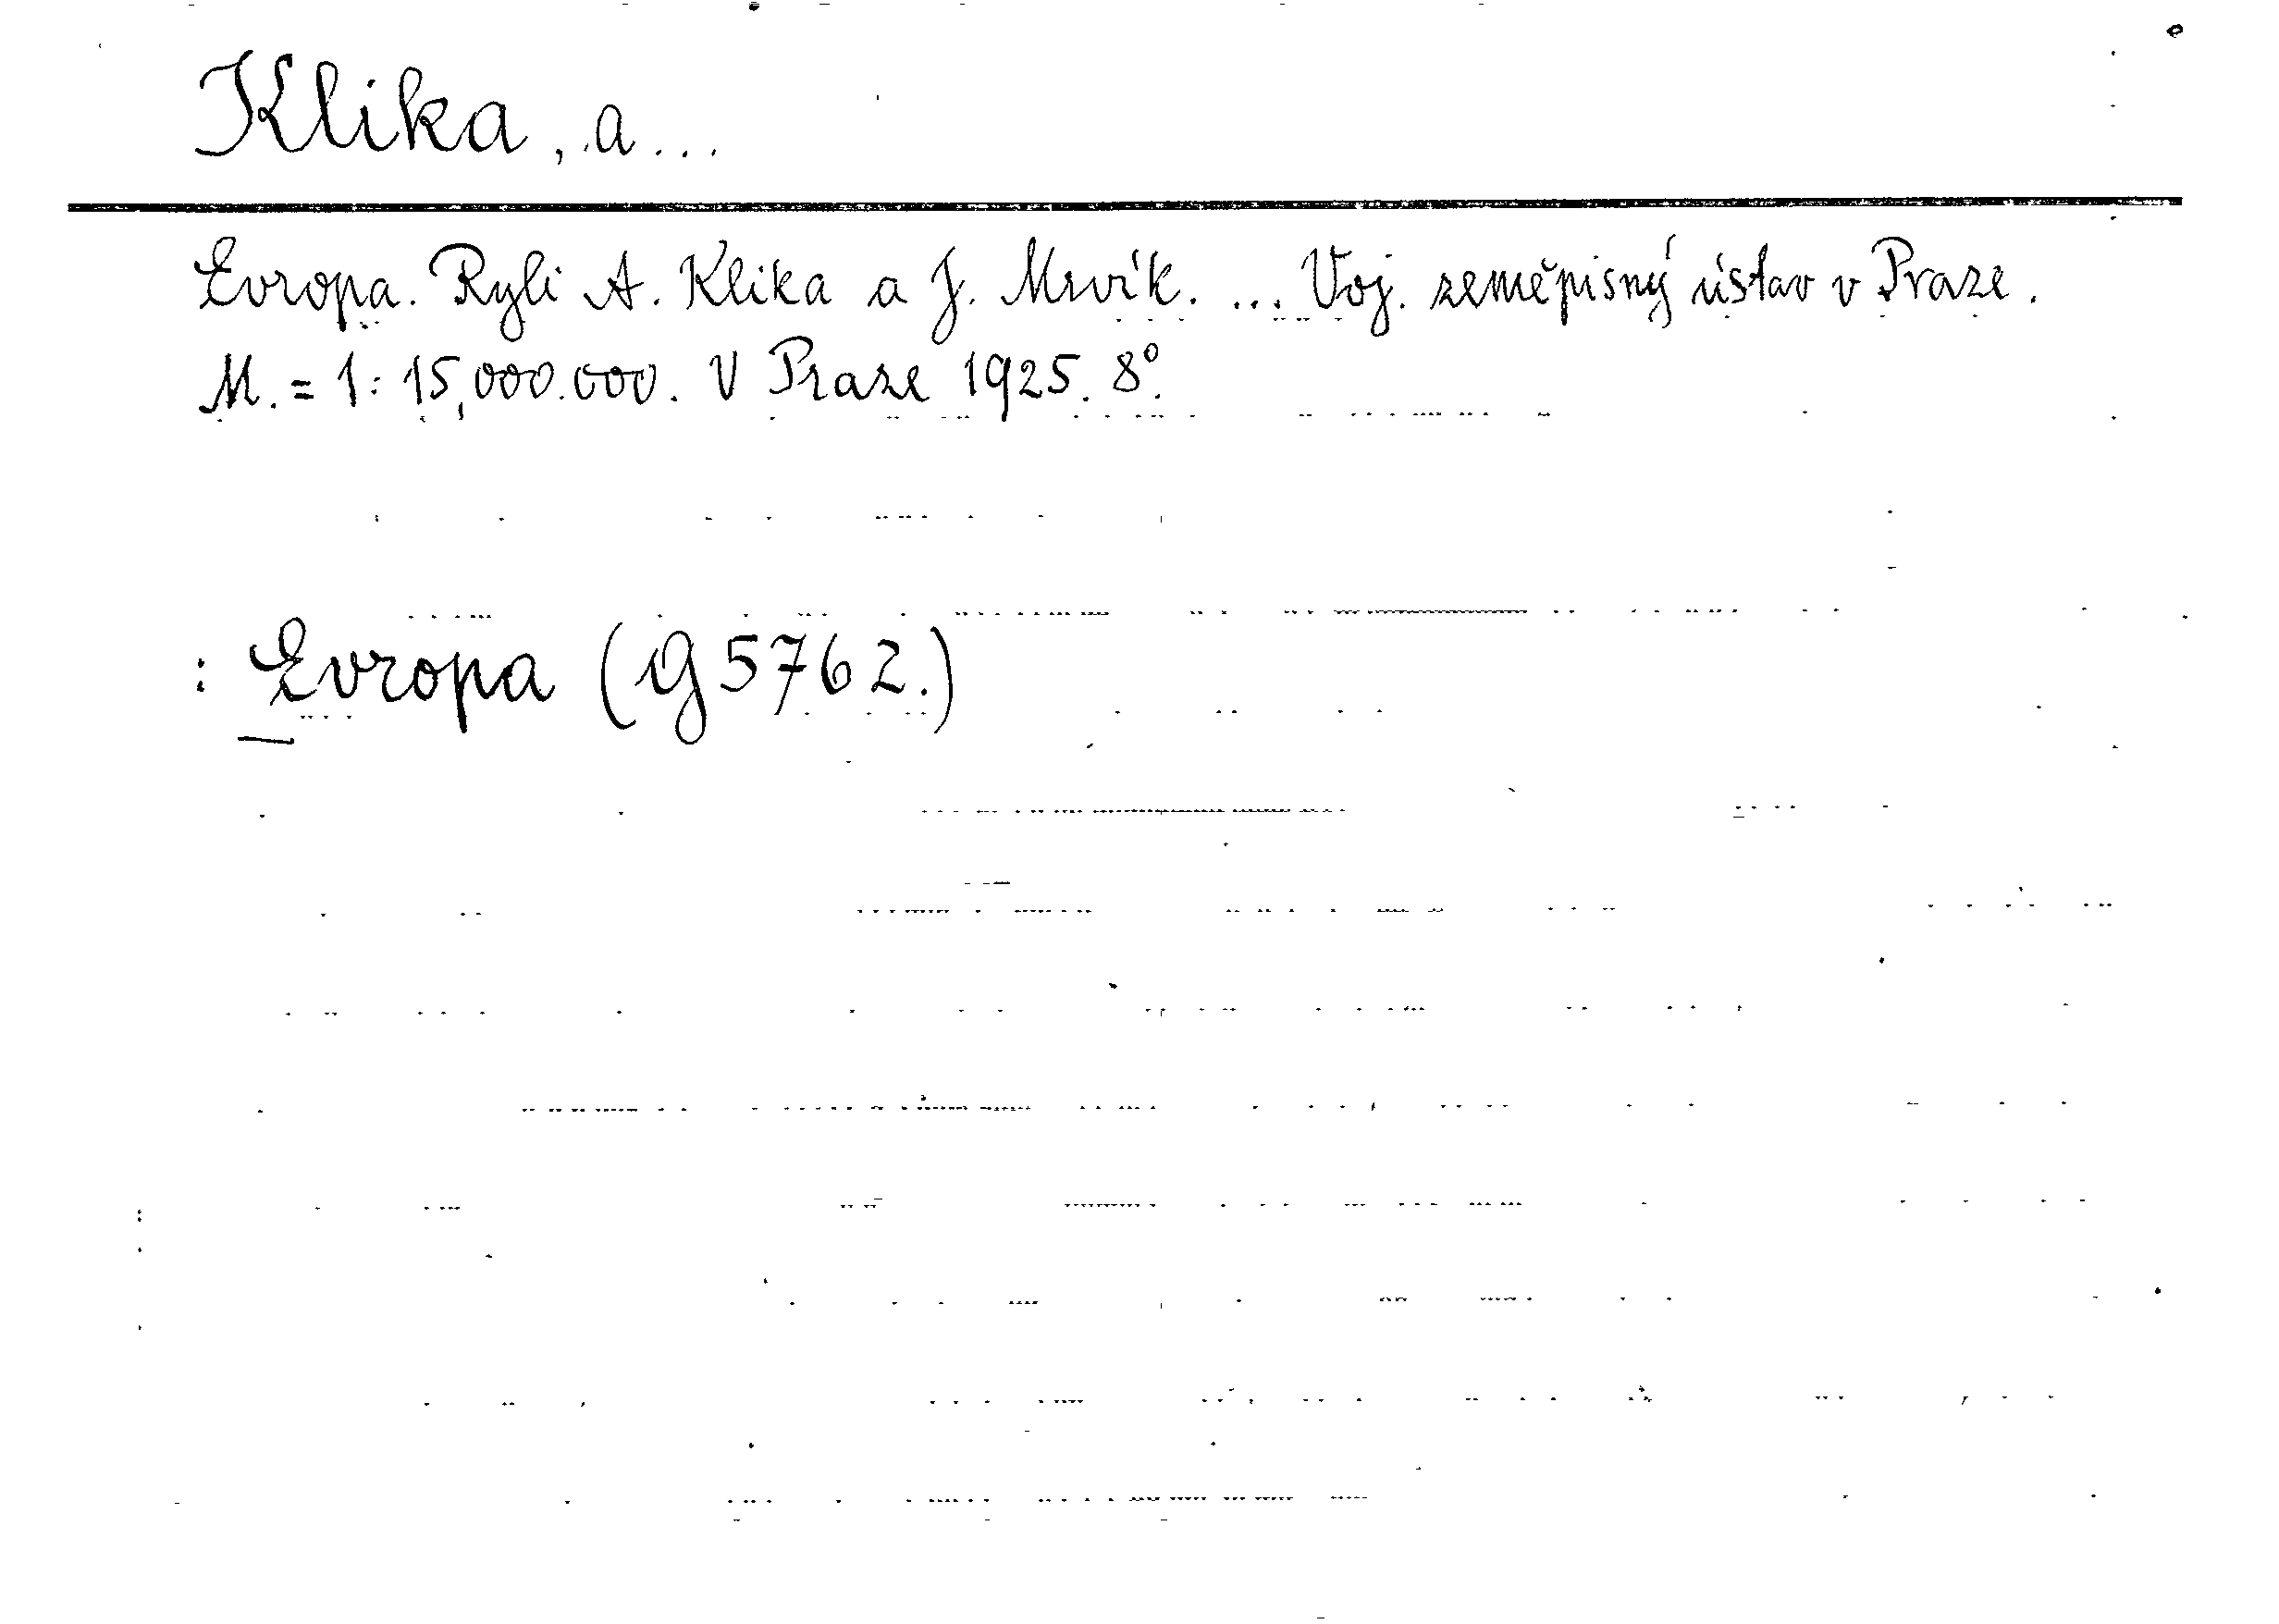 Klika, a...
Evropa. Ryli A. Klika a J. Mrvík. ... Voj. zeměpisný ústav v Praze.
M. = 1 : 15,000.000. V Praze 1925. 8°.
: Evropa (G 5762.)